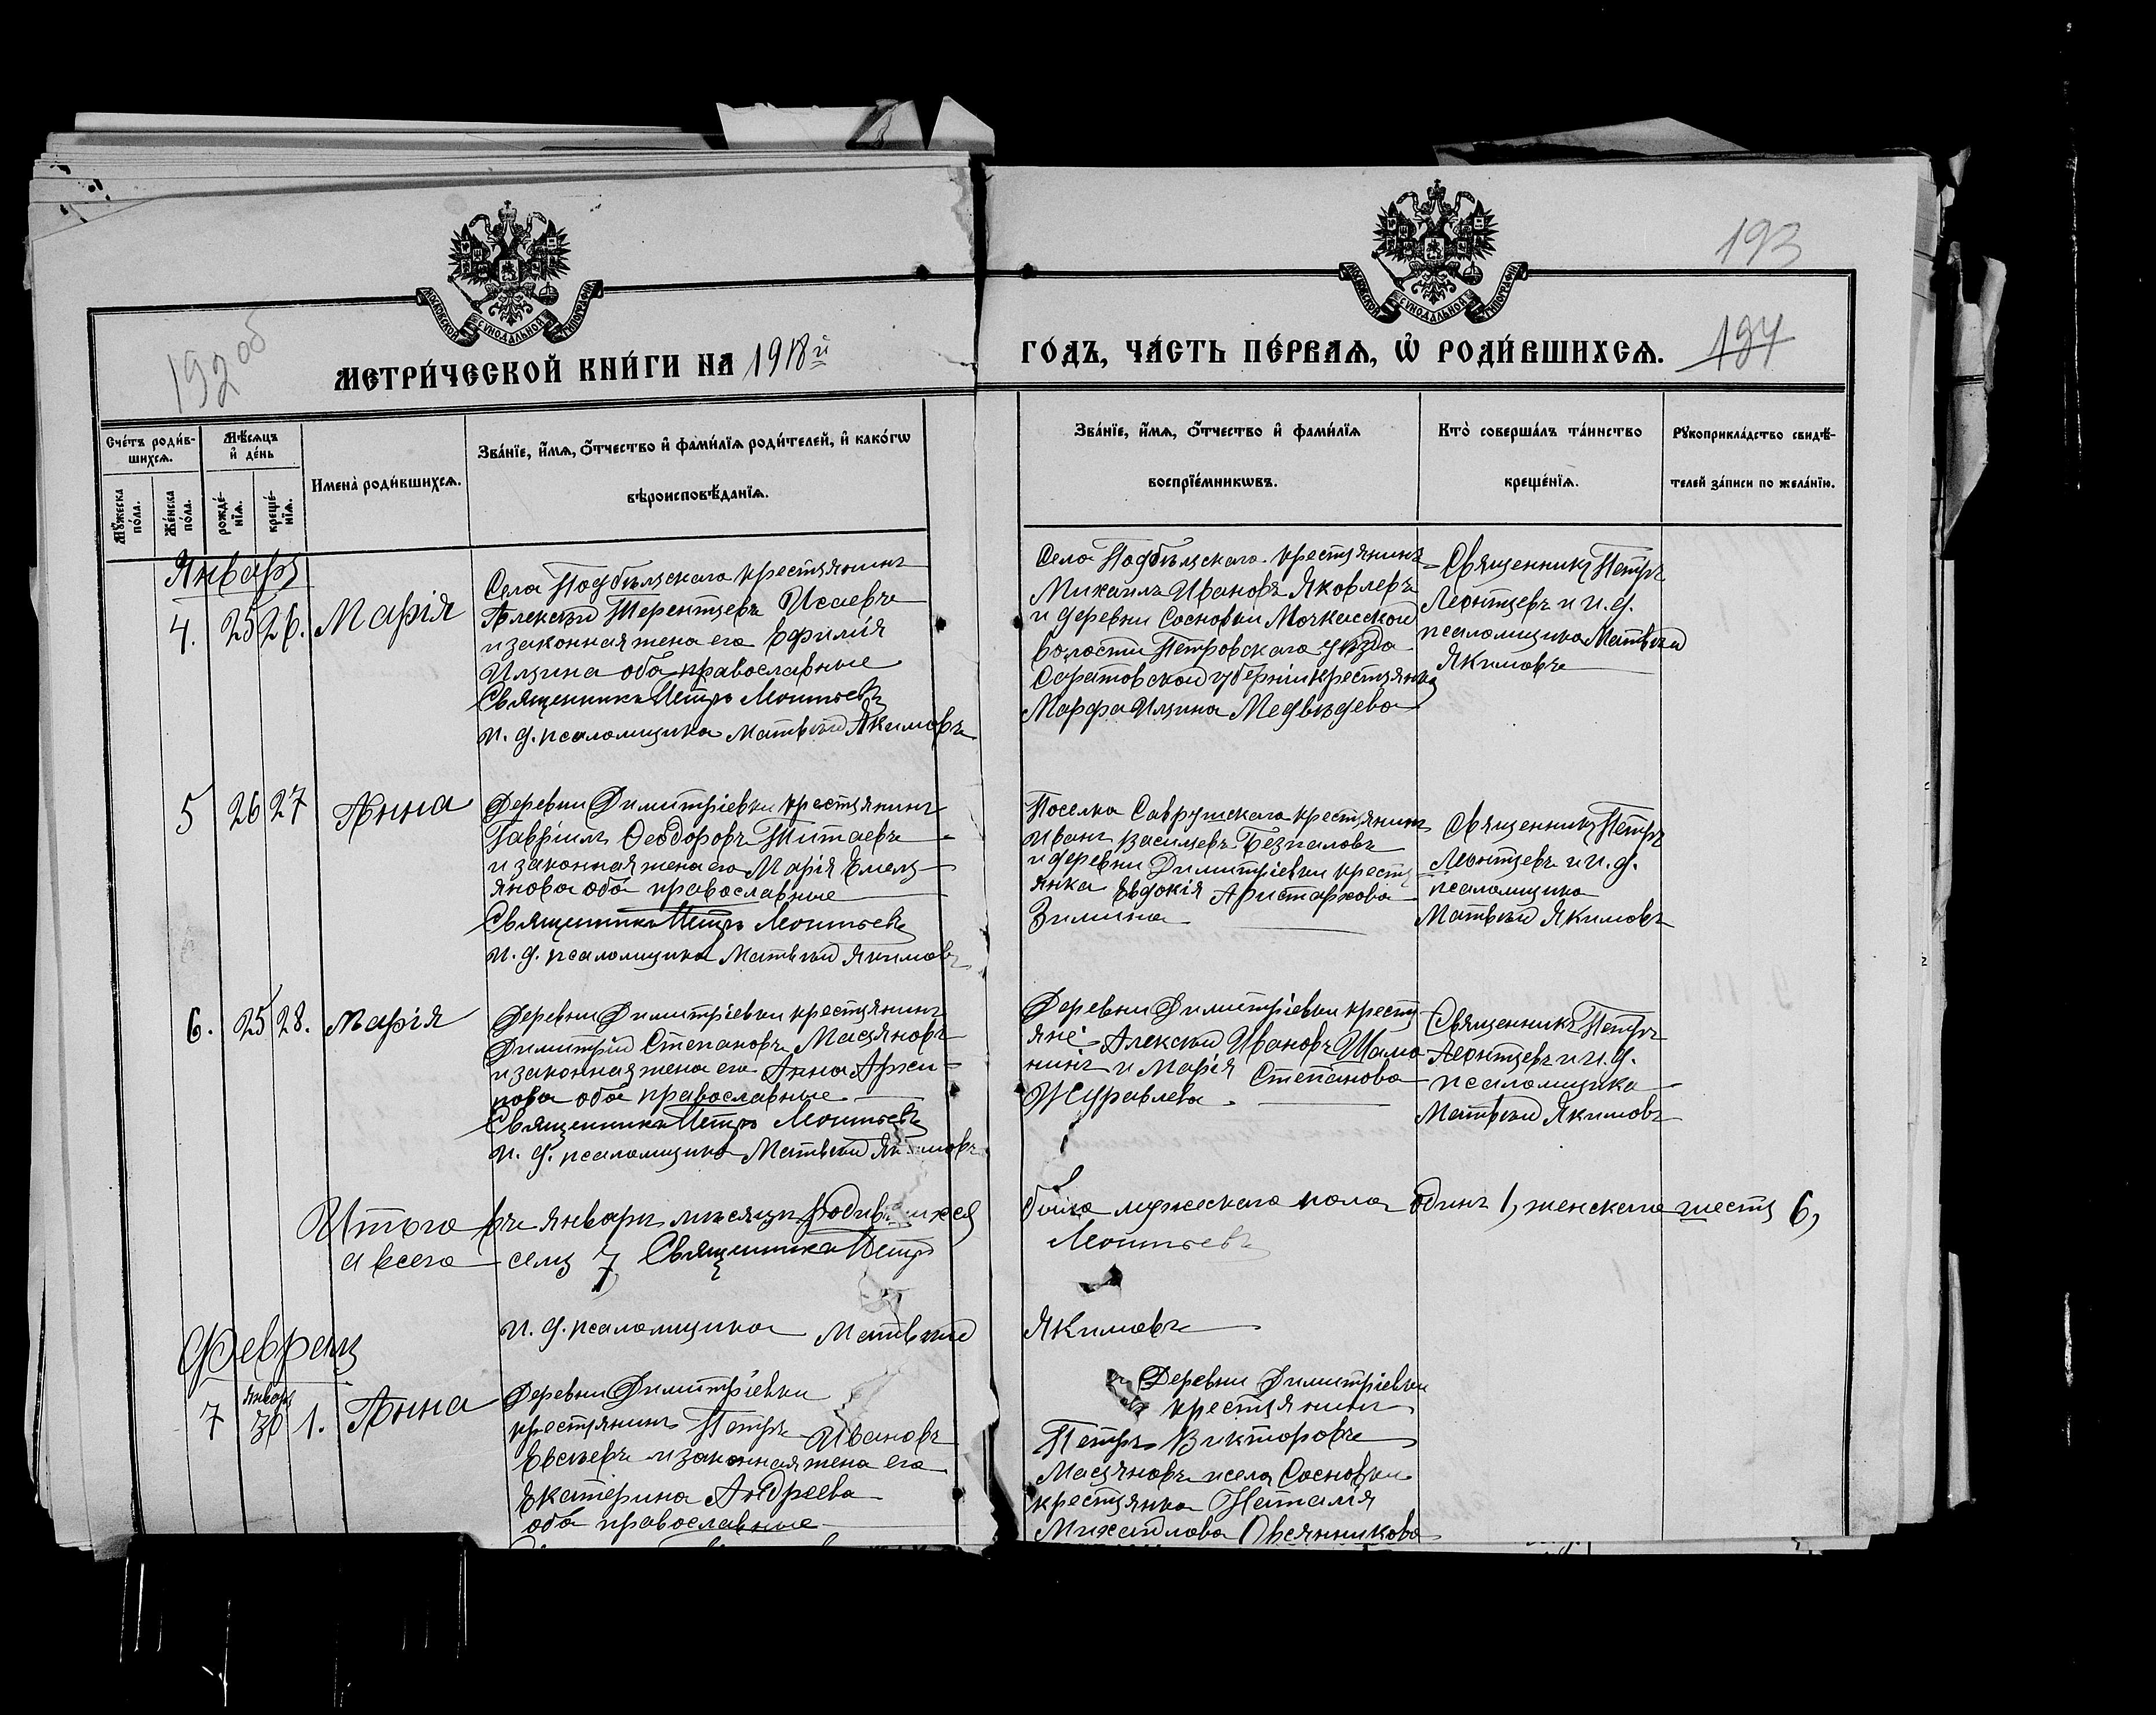 193
192об
МОСКОВСКОЙ СѴНОДАЛЬНОЙ ТИПОГРАФІИ
МОСКОВСКОЙ СѴНОДАЛЬНОЙ ТИПОГРАФІИ
МЕТРИ́ЧЕСКОЙ КНИ́ГИ НА 1918й
ГО́ДЪ, ЧА́СТЬ ПЕ́РВАѦ, Ѡ҆ РОДИ́ВШИХСѦ.
194
Сче́тъ роди́в-
шихсѧ.
Мѣ́сѧцъ
и҆ де́нь
Именà роди́вшихсѧ.
Зва́нїе, и҆́мѧ, ѻ҆́тчество и҆ фами́лїѧ роди́телей, и҆ како́гѡ
вѣроисповѣ́данїѧ.
Зва́нїе, и҆́мѧ, ѻ҆́тчество и҆ фами́лїѧ
воспрїе́мникѡвъ.
Кто̀ соверша́лъ та́инство
креще́нїѧ.
Рꙋкоприкла́дство свидѣ́-
телей за́писи по жела́нїю.
Мꙋ́жеска
по́ла.
Же́нска
по́ла.
рожде́-
нїѧ.
креще́-
нїѧ.
Январь
4. 25 26. Марія
Села Подбѣльскаго крестьянинъ
Алексѣй Терентьевъ Исаевъ
и законная жена его Ефимія
Ильина оба православные
Священникъ Петръ Леонтьевъ
и. д. псаломщика Матвѣй Якимовъ
Села Подбѣльскаго крестьянинъ
Михаилъ Ивановъ Яковлевъ
и деревни Сосновки Мочкасской
волости Петровскаго уѣзда
Саратовской губерніи крестьянка
Марфа Ильина Медвѣдева
Священникъ Петръ
Леонтьевъ и и. д.
псаломщика Матвѣй
Якимовъ
5 26 27 Анна
Деревни Димитріевки крестьянинъ
Гавріилъ Ѳеодоровъ Титаевъ
и законная жена его Марія Емель-
янова оба православные
Священникъ Петръ Леонтьевъ
и. д. псаломщика Матвѣй Якимовъ
Поселка Саврушскаго крестьянинъ
Иванъ Васильевъ Безпаловъ
и деревни Димитріевки кресть
янка Евдокія Аристархова
Зимина
Священникъ Петръ
Леонтьевъ и и. д.
псаломщика
Матвѣй Якимовъ
6. 25 28. Марія
Деревни Димитріевки крестьянинъ
Димитрій Степановъ Масяновъ
и законная жена его Анна Архи-
пова оба православные
Священникъ Петръ Леонтьевъ
и. д. псаломщика Матвѣй Якимовъ
Деревни Димитріевки кресть
яне Алексѣй Ивановъ Шама
нинъ и Марія Степанова
Журавлева.
Священникъ Петръ
Леонтьевъ и и. д.
псаломщика
Матвѣй Якимовъ
Итого въ январѣ мѣсяцѣ родившихся было мужескаго пола одинъ 1, женскаго шесть 6,
а всего семь 7 Священникъ Петръ Леонтьевъ
и. д. псаломщика Матвѣй Якимовъ
Февраль
7 январь 30 1. Анна
Деревни Димитріевки
крестьянинъ Петръ Ивановъ
Евсѣевъ и законная жена его
Екатерина Андреева
оба православные
Деревни Димитріевки
крестьянинъ
Петръ Викторовъ
Масяновъ и села Сосновки
крестьянка Наталія
Михайлова Овсянникова